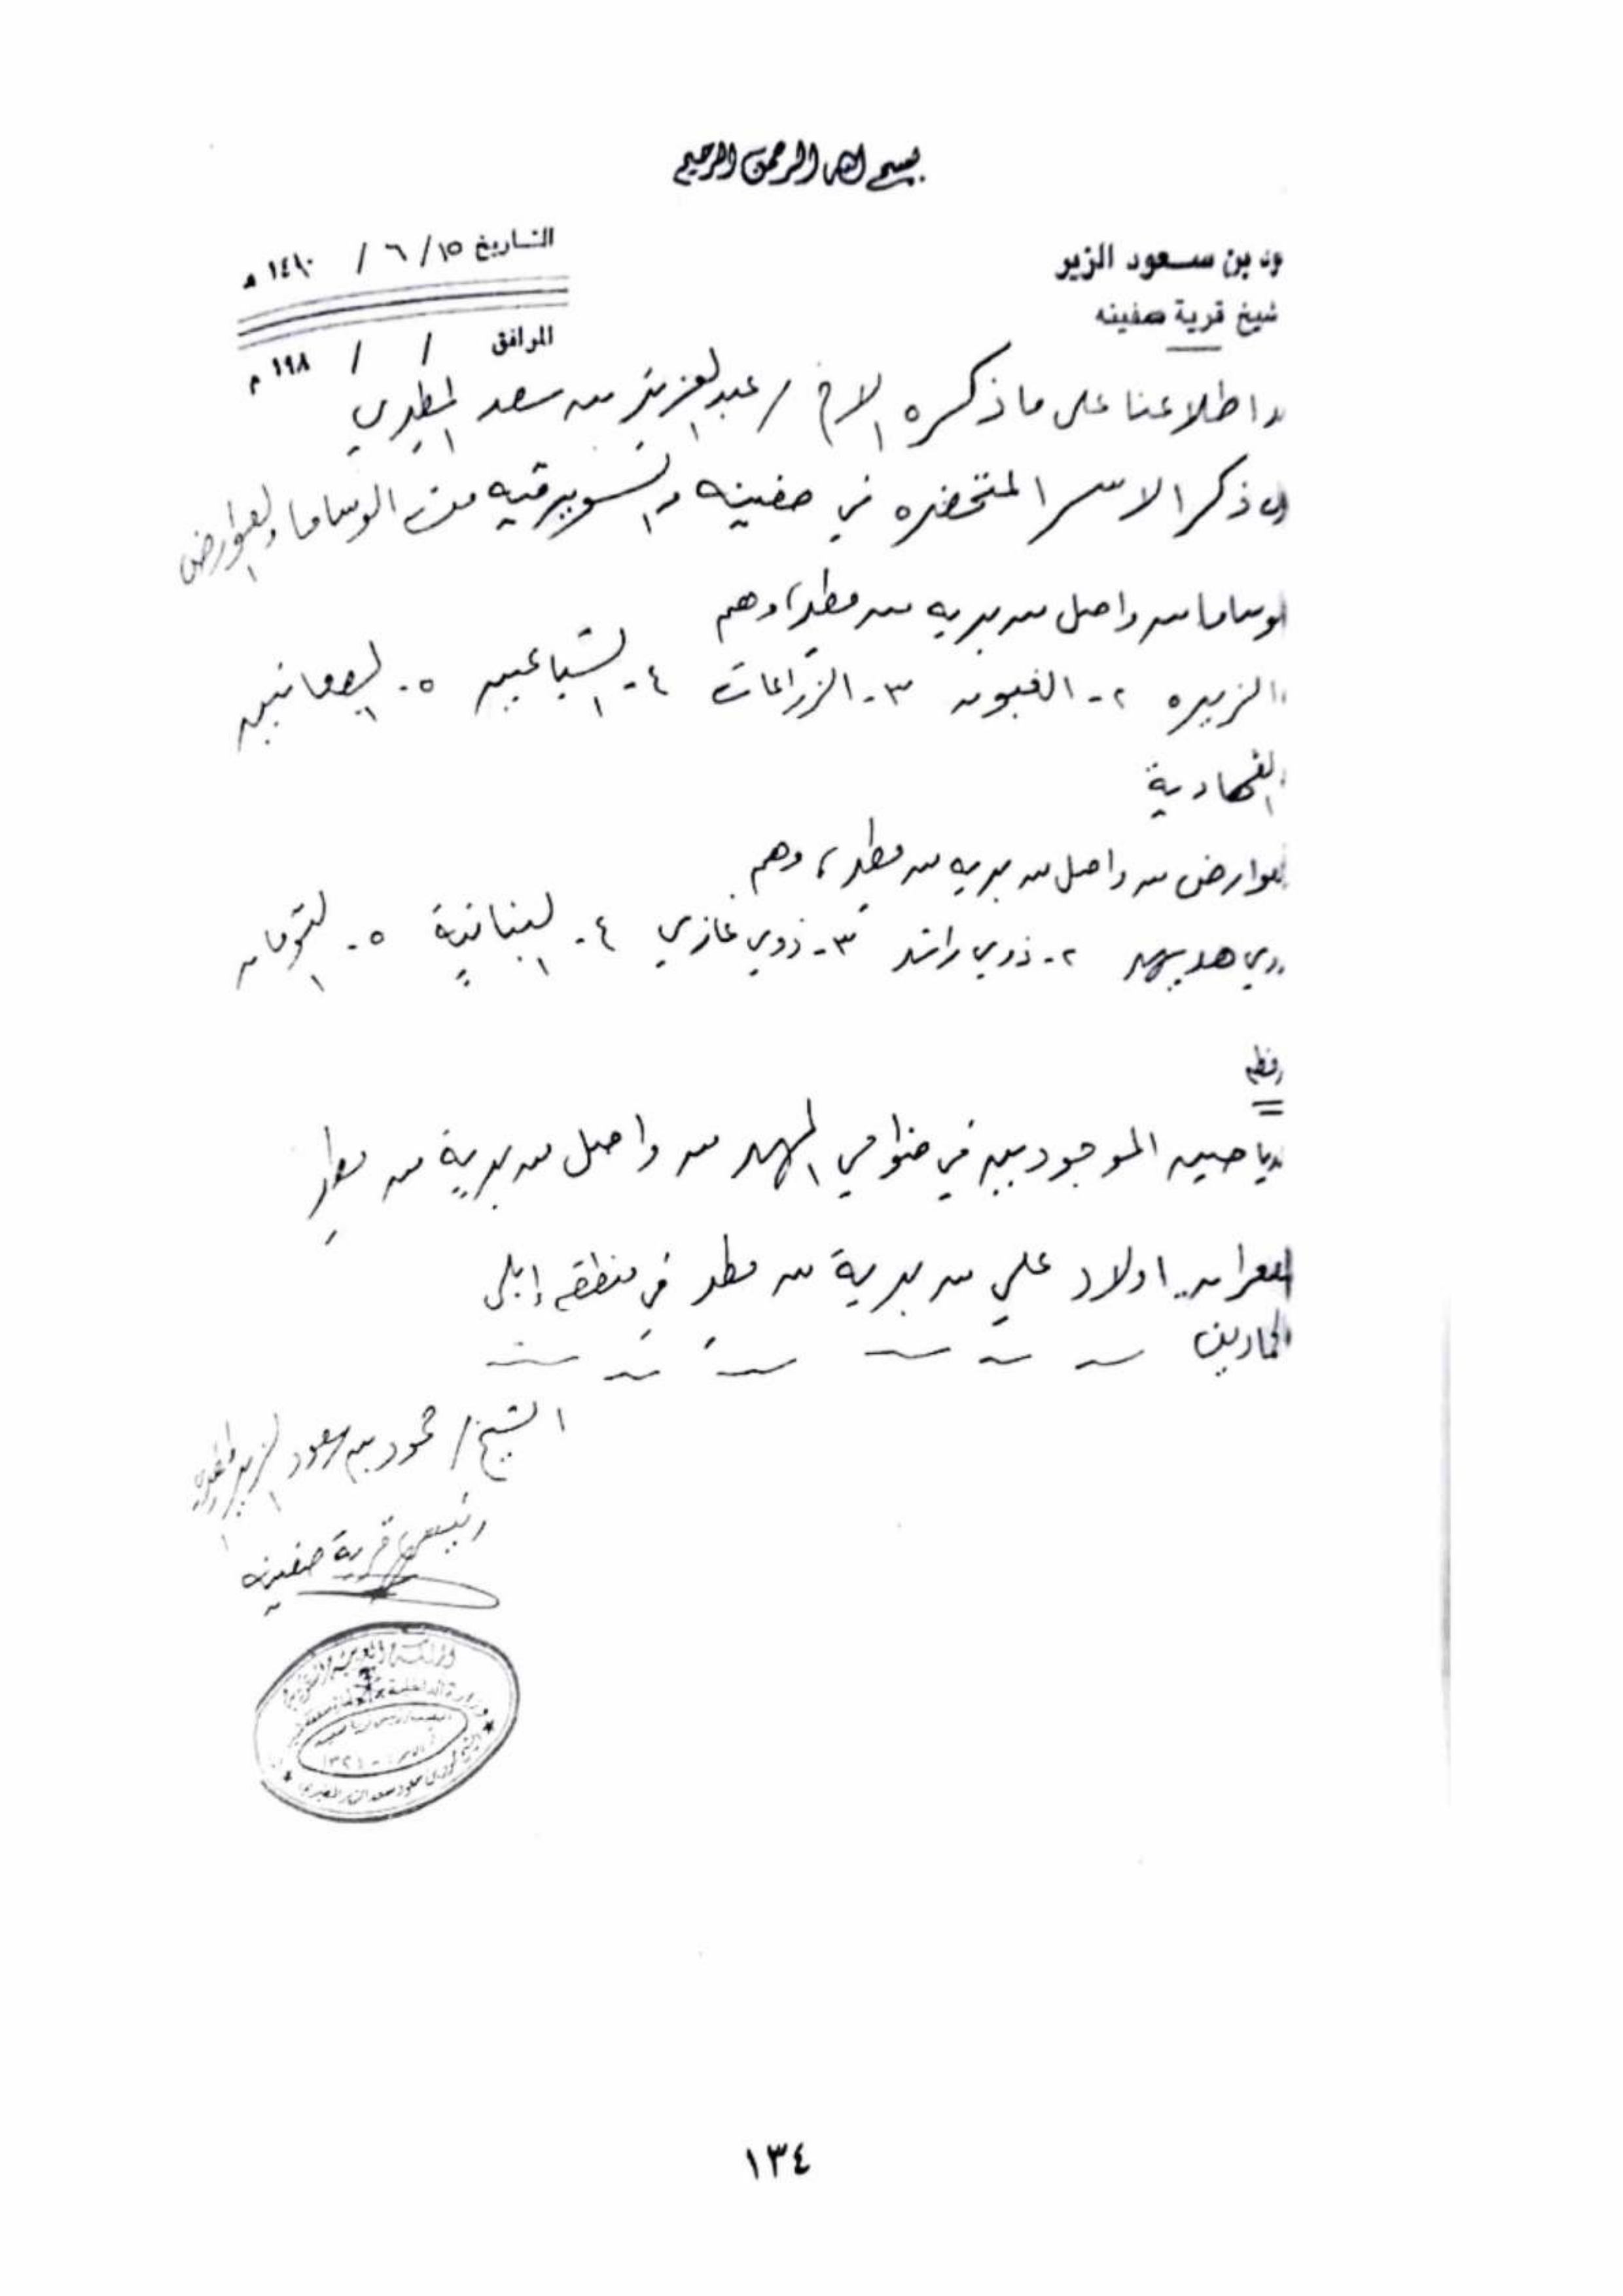 بسم الله الرحمن الرحيم
ود بن سعود الزير
شيخ قرية صفينه
التاريخ ١٥ / ٦ / ١٤١٠ هـ
الموافق / / ١٩٨ م
اطلاعنا على ما ذكره الاخ / عبدالعزيز بن سعد المطيري
ذكر الاسر المتحضره في صفينه والسويرقيه من الوساما والعوارض
لوساما من واصل من بريه من مطير، وهم
الزيره ٢- الغبون ٣- الزراعات ٤- الشياعين ٥- الصعانين
الفهادية
لعوارض من واصل من بريه من مطير، وهم
وي هديهد ٢- ذوي راشد ٣- ذوي غازي ٤- البنانية ٥- التومان
دياحين الموجودين في ضواحي المهد من واصل من برية من مطير
العفران اولاد علي من برية من مطير في منطقة إبلى
الشيخ / حمود بن سعود الزير المطيري
رئيس قرية صفينه
١٣٤